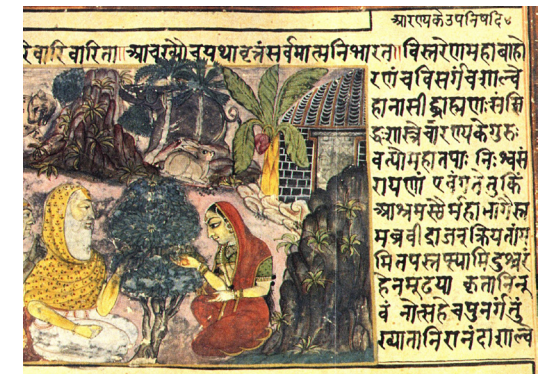 आरण्यकेउपनिषदि४
रिवारिवारिता॥ आचख्यौचयथावृत्तंसर्वमात्मनिभारत॥ विस्तरेणमहाबाहो
रणंचविसर्गंचशाल्वे
हानासीद्ब्राह्मणःसंसि
द्धःशास्त्रेचारण्यकेगुरुः
महातपाः निःश्वसं
एवंगतेतुकिं
आश्रमस्थैर्महाभागैस्त
मब्रवीद्राजन्क्रियतां
मितपस्तप्स्यामिदुश्चरं
हेनमूढया कृतानि
वं नोत्सहेचपुनर्गंतुं
ख्यातानिरानंदाशाल्वे